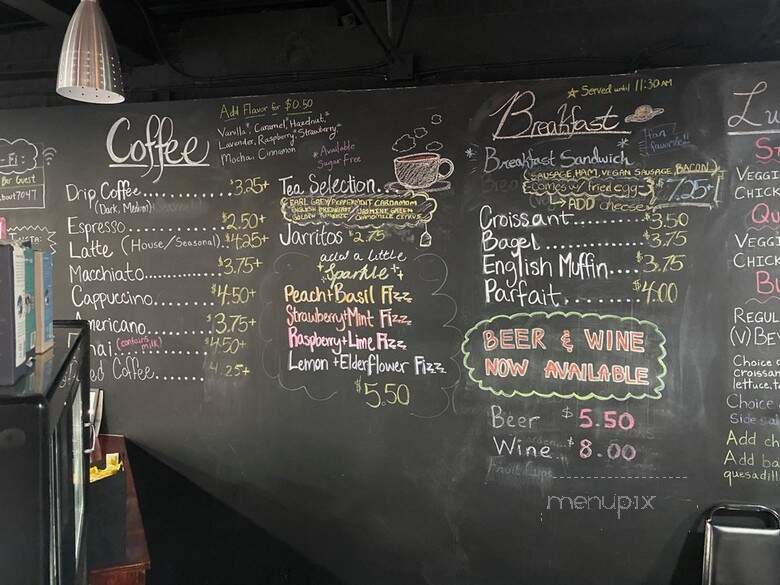 Fi:
Bar Guest
about7047
Coffee
Add Flavor for $0.50
Vanilla, Caramel, Hazelnut,
Lavender, Raspberry, Strawberry,
Mocha, Cinnamon
*Available
Sugar Free
Drip Coffee........ $3.25+
(Dark, Medium)
Espresso........ $2.50+
Latte (House/Seasonal).. $4.25+
Macchiato........ $3.75+
Cappuccino........ $4.50+
Americano........ $3.75+
hai..(contains milk)....... $4.50+
ed Coffee....... 4.25+
Tea Selection..
EARL GREY PEPPERMINT CARDAMOM
ENGLISH BREAKFAST JASMINE GREEN
GOLDEN TURMERIC CHAMOMILE CITRUS
Jarritos $2.75
add a little
*Sparkle*
Peach+Basil Fizz
Strawberry+Mint Fizz
Raspberry+Lime Fizz
Lemon+Elderflower Fizz
$5.50
☆ Served until 11:30AM
Breakfast
Breakfast Sandwich
(SAUSAGE, HAM, VEGAN SAUSAGE, BACON)
comes w/ fried egg
→ADD cheese
$7.25+
Croissant......... $3.50
Bagel............ $3.75
English Muffin.... $3.75
Parfait......... $4.00
BEER & WINE
NOW AVAILABLE
Beer $5.50
Wine $8.00
Fruit Cups
menupix
Lu
VEGGI
CHICK
Qu
VEGGI
CHICK
BU
REGUL
(V) BEY
Choice o
croissan
lettuce, to
Choice
Side sal
Add ch
Add ba
quesadill